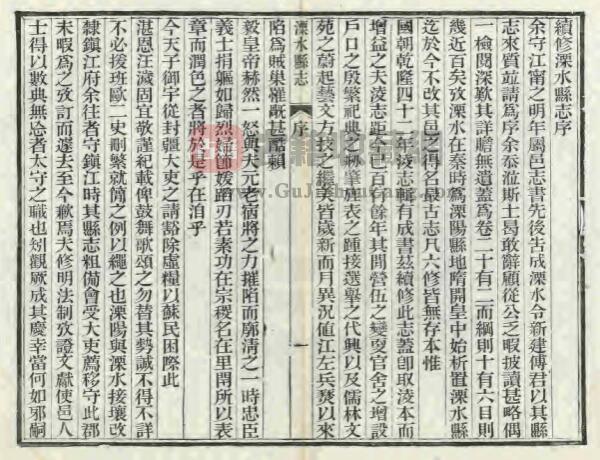 續修溧水縣志序
余守江甯之明年屬邑志書先後告成溧水令新建傅君以其縣
志來質並請為序余忝涖斯土曷敢辭顧從公之暇披讀甚略偶
一檢閱深歎其詳贍無遺蓋為卷二十有二而綱則十有六目則
幾近百矣攷溧水在秦時為溧陽縣地隋開皇中始析置溧水縣
迄於今不改其邑之得名最古志凡六修皆無存本惟
國朝乾隆四十一年淩志輯有成書茲續修此志蓋卽取淩本而
增益之夫淩志距今已百有餘年其間營伍之變更官舍之增設
戶口之殷繁祀典之肇旌表之踵接選舉之代興以及儒林文
苑之蔚起藝文方技之繼美皆歲新而月異況値江左兵燹以來
溧水縣志
序
一
陷為賊巢罹旤甚酷賴
毅皇帝赫然一怒與大元老宿將之力摧陷而廓清之一時忠臣
義士捐軀如歸烈婦媛蹈刃若素功在宗稷名在里閈所以表
章而潤色之者將於是乎在洎乎
今天子御宇從封疆大吏之請豁除虛糧以蘇民困際此
湛恩汪濊固宜敬謹紀載俾鼓舞歌頌之勿替其勢誠不得不詳
不必援班歐二史刪繁就簡之例以繩之也溧陽與溧水接壤改
隸鎮江府余往者守鎮江時其縣志粗備會受大吏薦移守此郡
未暇為之攷訂而遽去至今歉焉夫修明法制攷證文獻使邑人
士得以數典無忘者太守之職也矧觀厥成其慶幸當何如邪嗣
www.GuJi